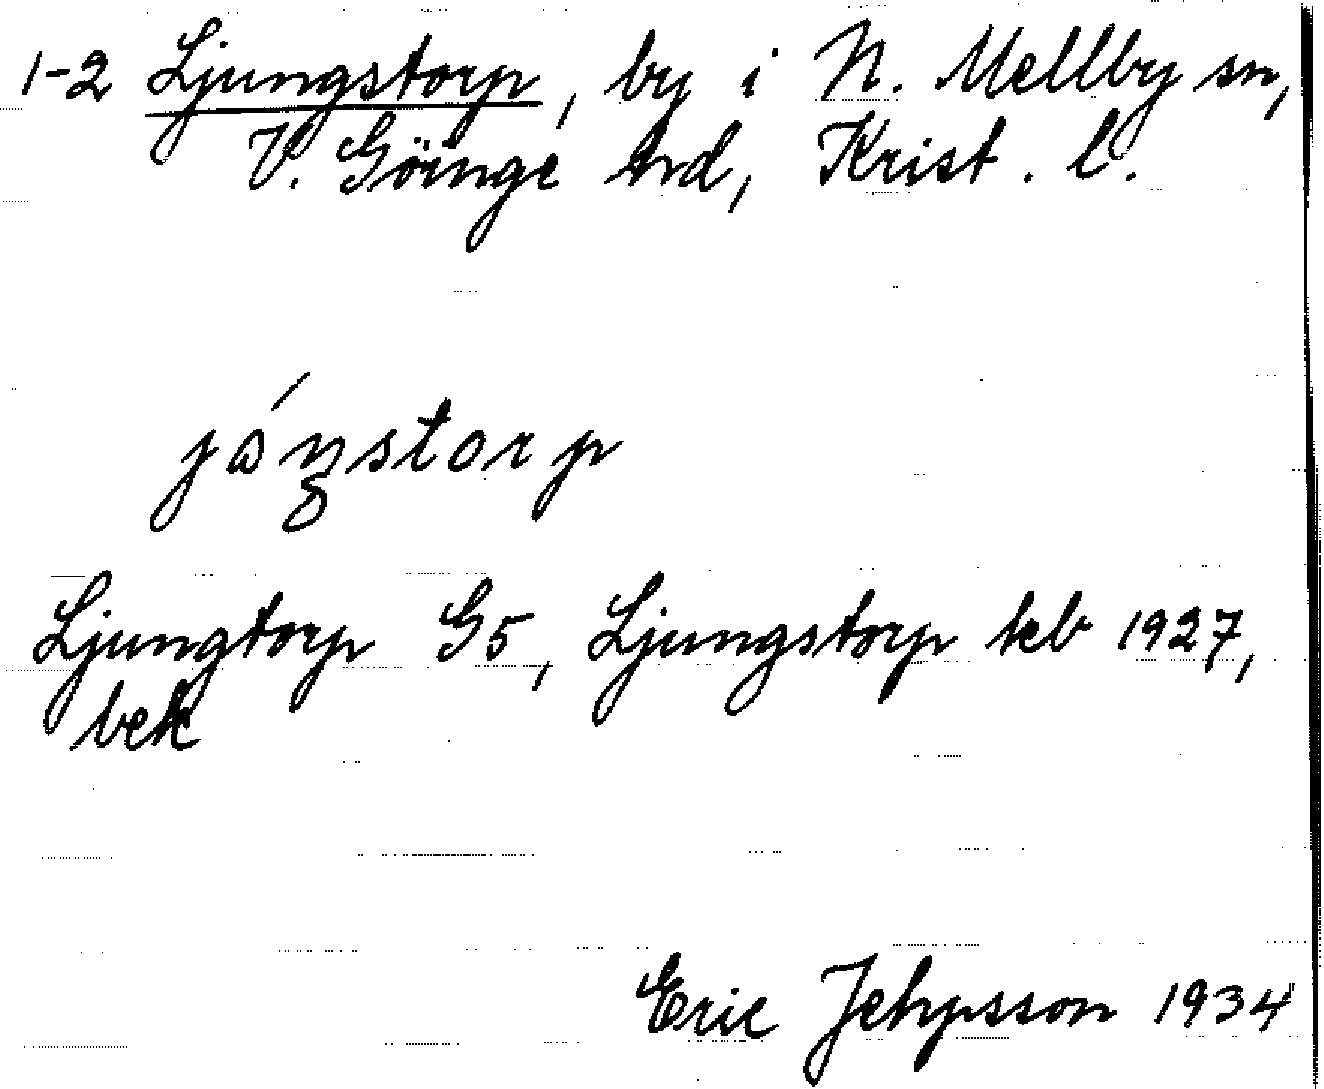 1-2 Ljungstorp, by i N. Mellby sn,
V. Göinge hrd, Krist. l.
jáŋstorp
Ljungtorp G5, Ljungstorp kb 1927,
bek
Eric Jehpsson 1934